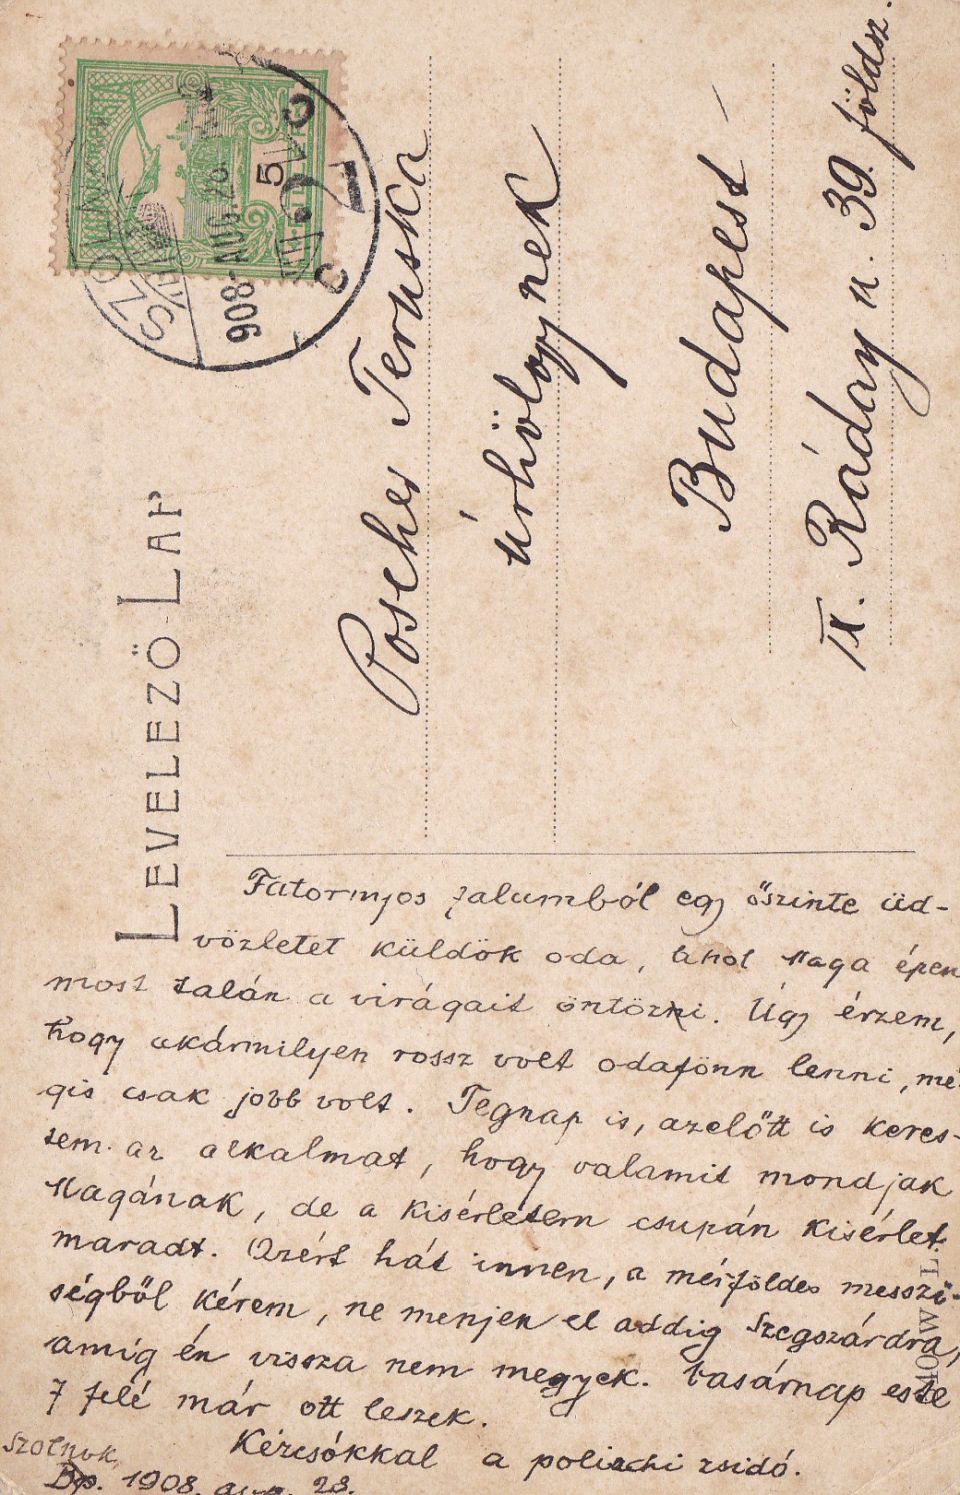 LEVELEZŐ-LAP
Poscher Teruska
úrhölgynek
Budapest
IX. Ráday u. 39. földsz.
SZOLNOK
908 AUG. 23.
5
Fatornyos falumból egy őszinte üd-
vözletet küldök oda, ahol Maga épen
most talán a virágait öntözni. Úgy érzem,
hogy akármilyen rossz volt odafönn lenni, mé-
gis csak jobb volt. Tegnap is, azelőtt is keres-
tem az alkalmat, hogy valamit mondjak
Magának, de a kisérletem csupán kisérlet
maradt. Azért hát innen, a mérföldes messzi-
ségből kérem, ne menjen el addig Szegszárdra,
amig én vissza nem megyek. Vasárnap este
7 felé már ott leszek.
Kézcsókkal a zsidó.
Szolnok
Bp. 1908. aug. 23.